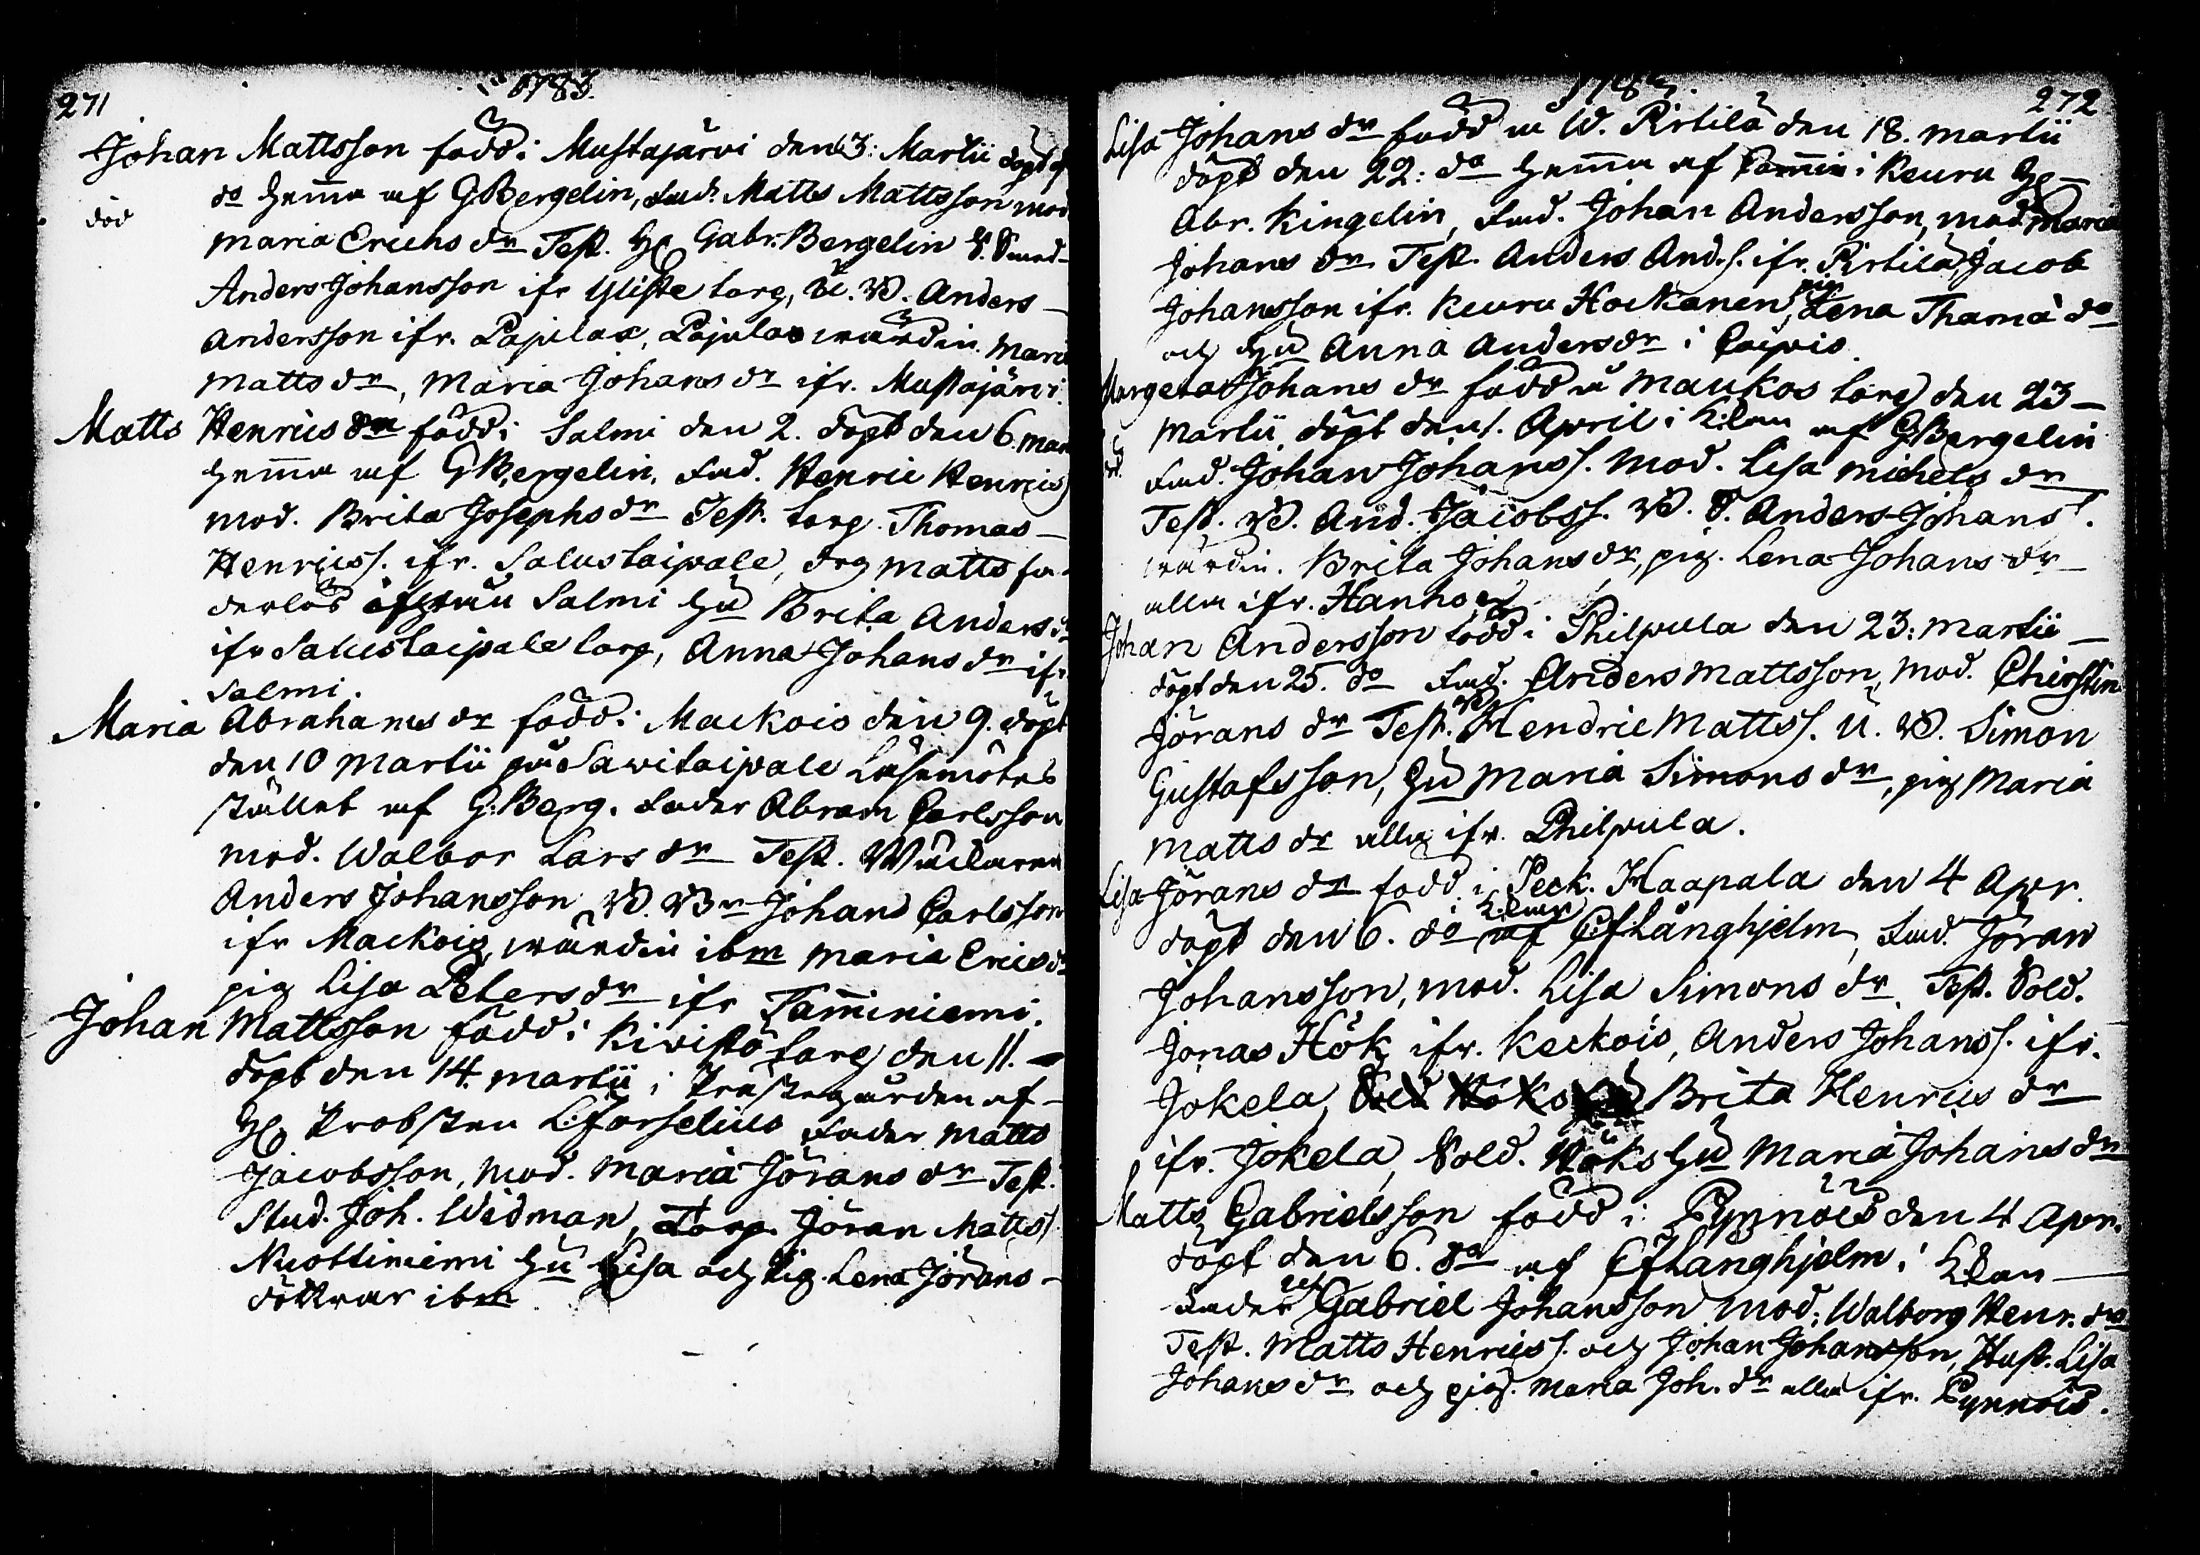 271
1783.
Johan Mattsson född i Mustajärvi den 3: Martii döpt
do hemma af G Bergelin, Fad. Matts Mattsson mod
död
Maria Erichs dr Test. H Gabr. Bergelin
Anders Johansson ifr torg, Anders
Andersson ifr. Pajulax, Pajulax värdin. Maria
Matts dr, Maria Johans dr ifr. Mustajärvi.
Matts Henrics född i Salmi den 2. döpt den 6. Mar
hemma af G Bergelin, Fad. Henric Henrics
mod. Brita Josephs dr Test. torp. Thomas
Henricss. ifr. Salustaipale, drg Matts fa-
derlös Salmi hu Brita Anders dr
ifr Salustaipale torp, Anna Johans dr ifr
Salmi.
Maria Abrahams dr född i Mackois den 9. döpt
den 10 Martii på Savitaipale Läsemötes
stället af G: Berg. Fader Abram Carlsson
mod. Walbor Lars dr Test.
Anders Johansson Johan Carlsson
ifr Mackois, värdin ibm Maria Erics dr
pig Lisa Peters dr ifr Tamminiemi.
Johan Mattsson född i Kivistö torg den 11.
döpt den 14. Martii i Prästegården af
H Probsten L: Forselius Fader Matts
Jacobsson, Mod. Maria Jörans dr Test.
Stud. Joh. Widman, Torp. Jöran Mattss
Nuottiniemi hu Lisa och Pig. Lena Jörans
döttrar ibm
272
178
Lisa Johans dr född i W. Pirtilä den 18. Martii
döpt den 22: do hemma af i Keuru H
Abr. Kingelin, Fad. Johan Andersson, mod. Maria
Johans dr Test. Anders And.s. ifr. Pirtilä, Jacob
Johansson ifr. Keuru Hockanen, pig Lena Thoma dr
och hu Anna Anders dr i
Margeta Johans dr född i Maukos torg den 23
Martii döpt den 1. April i K:kan af G Bergelin
Fad. Johan Johanss. Mod. Lisa Michels dr
Test. And. Jacobss. Anders Johans s.
värdin. Brita Johans dr, pig. Lena Johans dr
alla ifr. Hanho
Johan Andersson född i Philpula den 23: Martii
döpt den 25. do Fad. Anders Mattsson, Mod. Chirstin
Jörans dr Test. Hendric Mattss. U. Simon
Gustafsson, hu Maria Simons dr, pig Maria
Matts dr alla ifr. Philpula.
Lisa Jörans dr född i Peck. Haapala den 4 Apr.
döpt den 6. do K:kan af C f Långhjelm, Fad. Jöran
Johansson, mod. Lisa Simons dr Test. Sold.
Jonas Hök ifr. Keckois, Anders Johanss. ifr.
Jokela, Brita Henrics dr
ifr. Jokela, Sold. Höks hu Maria Johans dr
Matts Gabrielsson född i Pynnöis den 4 Apr.
döpt den 6. do af C f Långhjelm i K:kan
Fader Gabriel Johansson mod: Walborg Henr. dr
Test. Matts Henricss. och Johan Johansson, Hust. Lisa
Johans dr och pig. Maria Joh. dr alla ifr. Pynnöis.